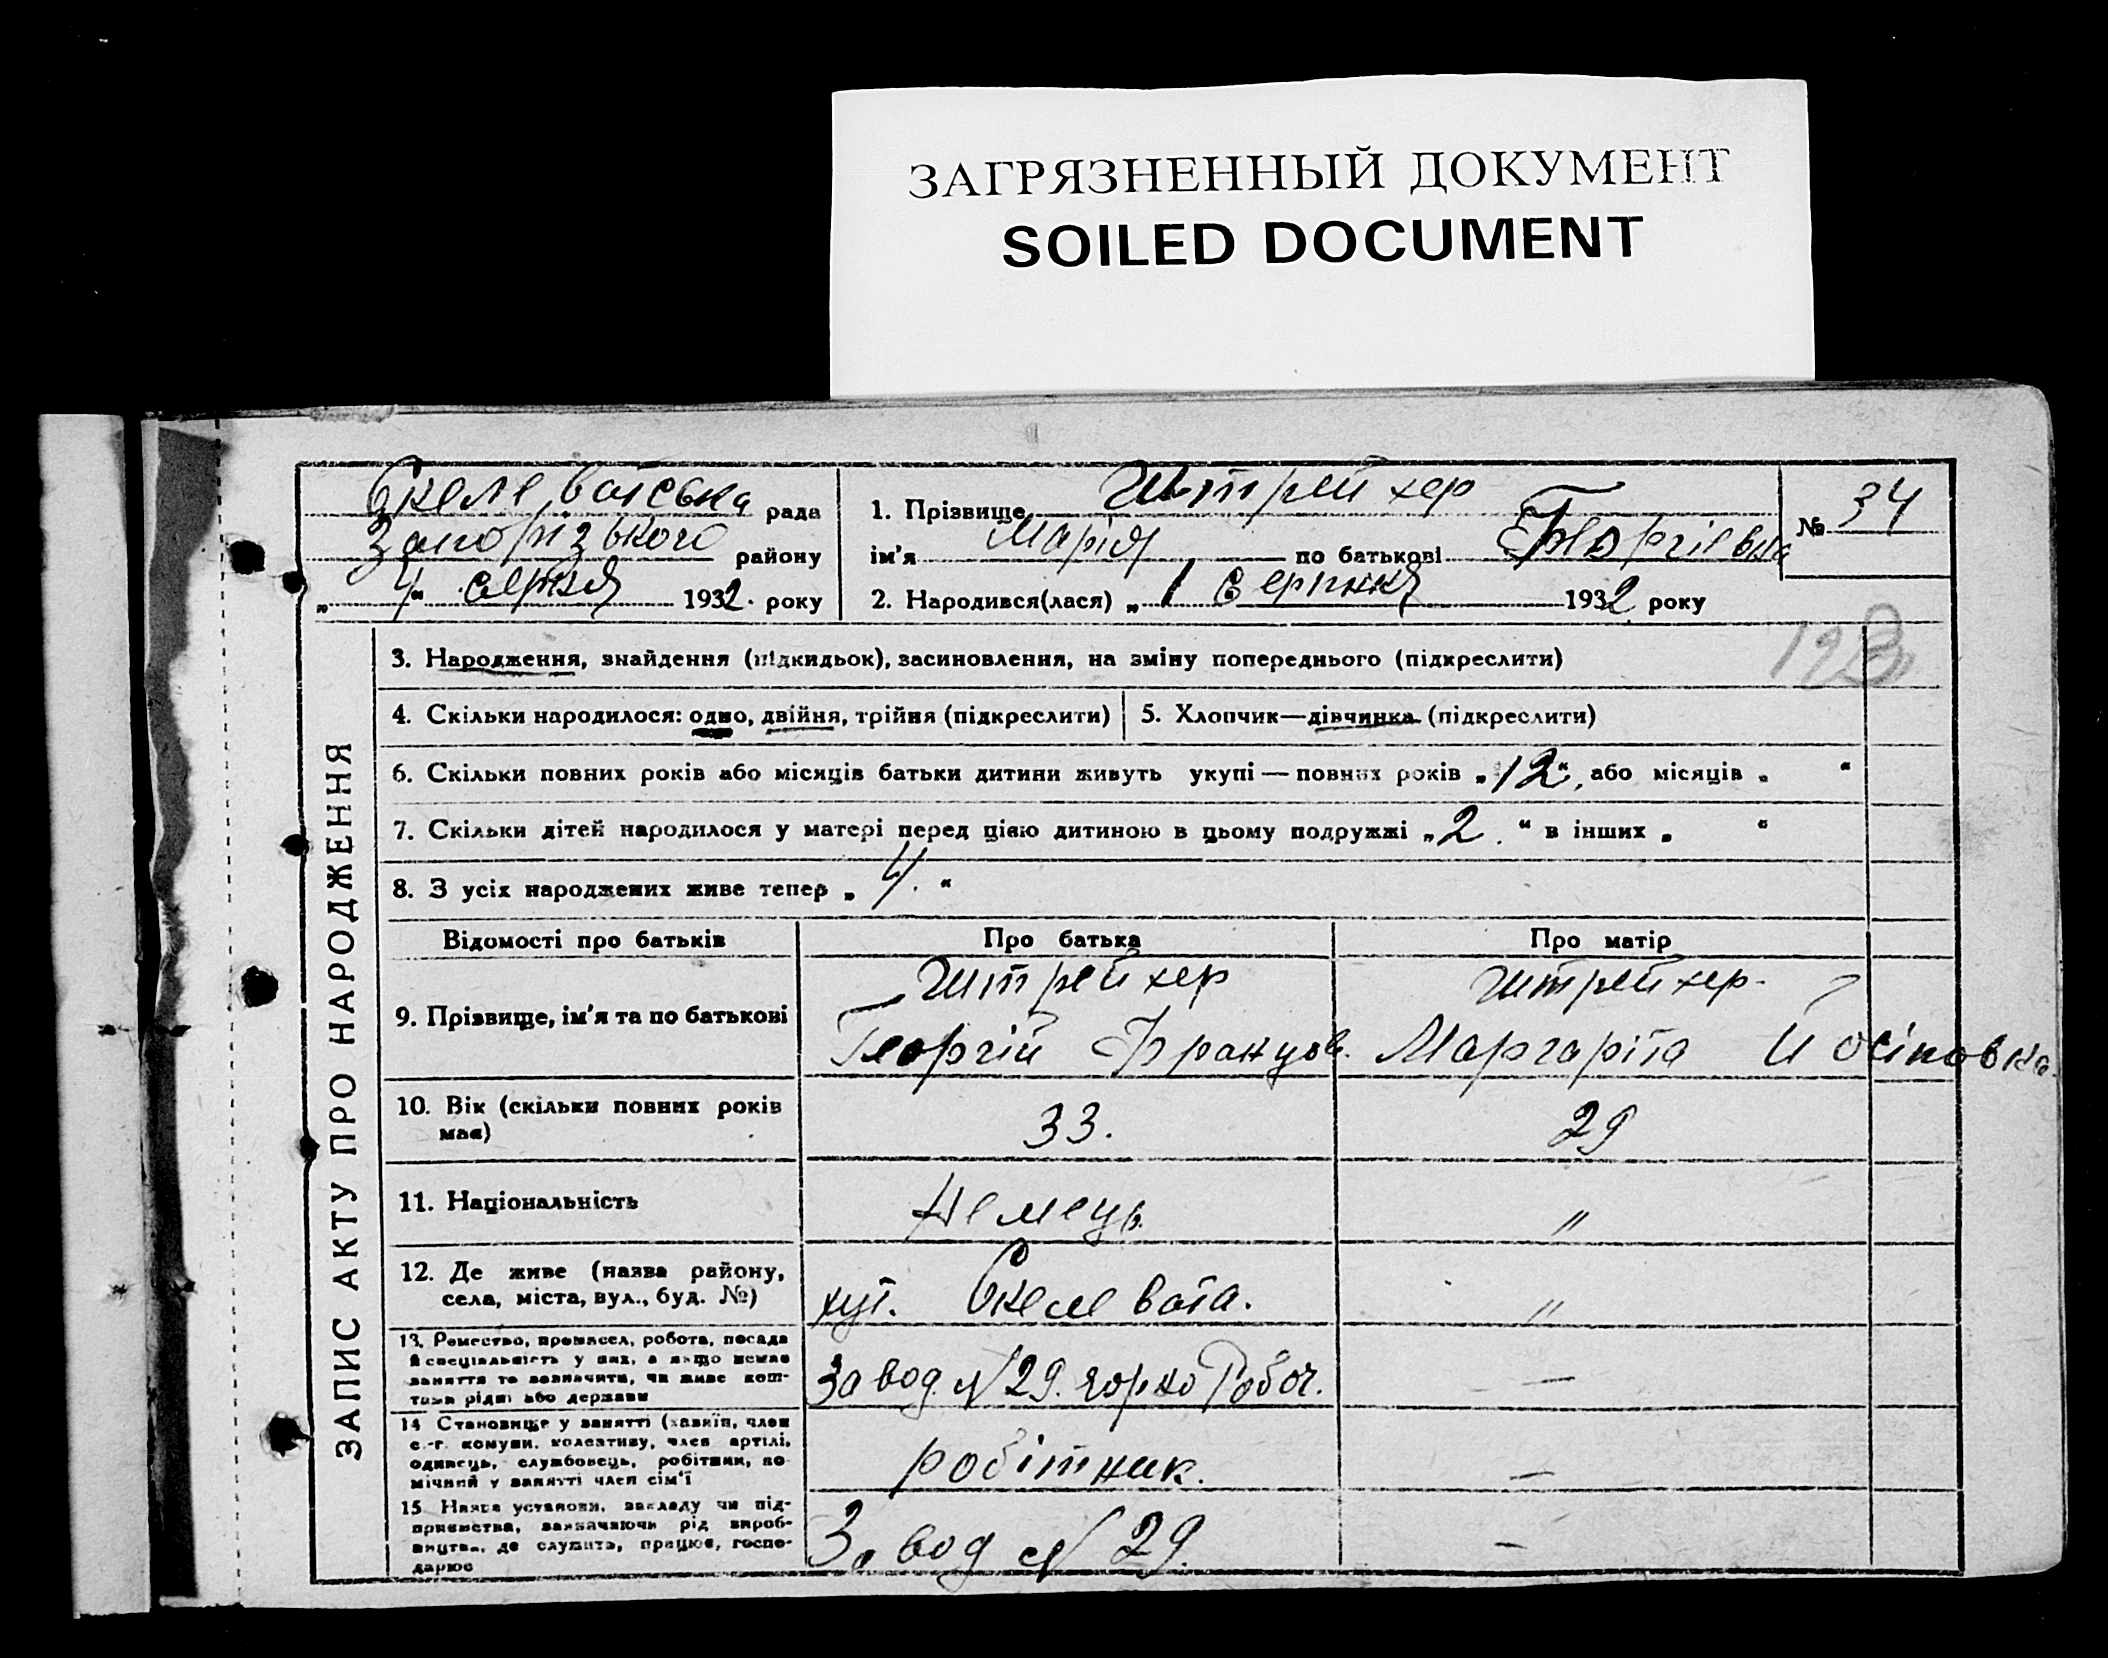 ЗАГРЯЗНЕННЫЙ ДОКУМЕНТ
SOILED DOCUMENT
Скелеватська рада
Запорізького району
„ 4 “ серпня 1932. року
1. Прізвище Штрейхер
ім'я Марія по батькові Георгієвна
№ 34
2. Народився(лася) „ 1 Серпня 1932 року
123
ЗАПИС АКТУ ПРО НАРОДЖЕННЯ
3. Народження, знайдення (підкидьок), засиновлення, на зміну попереднього (підкреслити)
4. Скільки народилося: одно, двійня, трійня (підкреслити)
5. Хлопчик—дівчинка (підкреслити)
6. Скільки повних років або місяців батьки дитини живуть укупі — повних років „ 12 “, або місяців „ “
7. Скільки дітей народилося у матері перед цією дитиною в цьому подружжі „ 2. “ в інших „ “
8. З усіх народжених живе тепер „ 4. “
Відомості про батьків Про батька Про матір
9. Прізвище, ім'я та по батькові
Штрейхер
Георгій Францов.
Штрейхер
Маргаріта Йосіповна
10. Вік (скільки повних років має)
33. 29
11. Національність Немець "
12. Де живе (назва району,
села, міста, вул., буд. №)
хут. Скелевата. "
13. Ремество, промисел, робота, посада
й спеціяльність у них, а якщо немає
заняття то зазначити, чи живе кош-
том рідні або держави
Завод № 29. Робоч. —
14 Становище у занятті (хазяїн, член
с.-г. комуни, колективу, член артілі,
одинець, службовець, робітник, по-
мічний у занятті член сім'ї
робітник. —
15 Назва установи, закладу чи під-
приємства, зазначаючи рід вироб-
ництва, де служить, працює, госпо-
дарює
Завод № 29. —